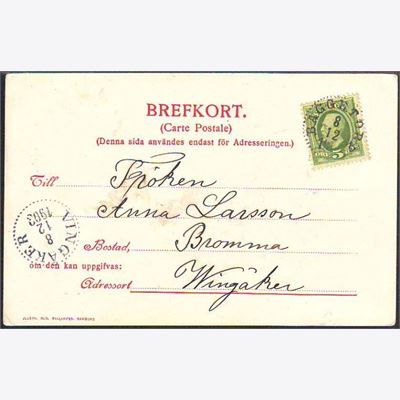 BREFKORT.
(Carte Postale)
(Denna sida användes endast för Adresseringen.)
BAGGETORP
8
12
5
Till Fröken
Anna Larsson
Bostad, Bromma
om den kan uppgifvas:
Adressort Wingåker
VINGÅKER
8
12
1903